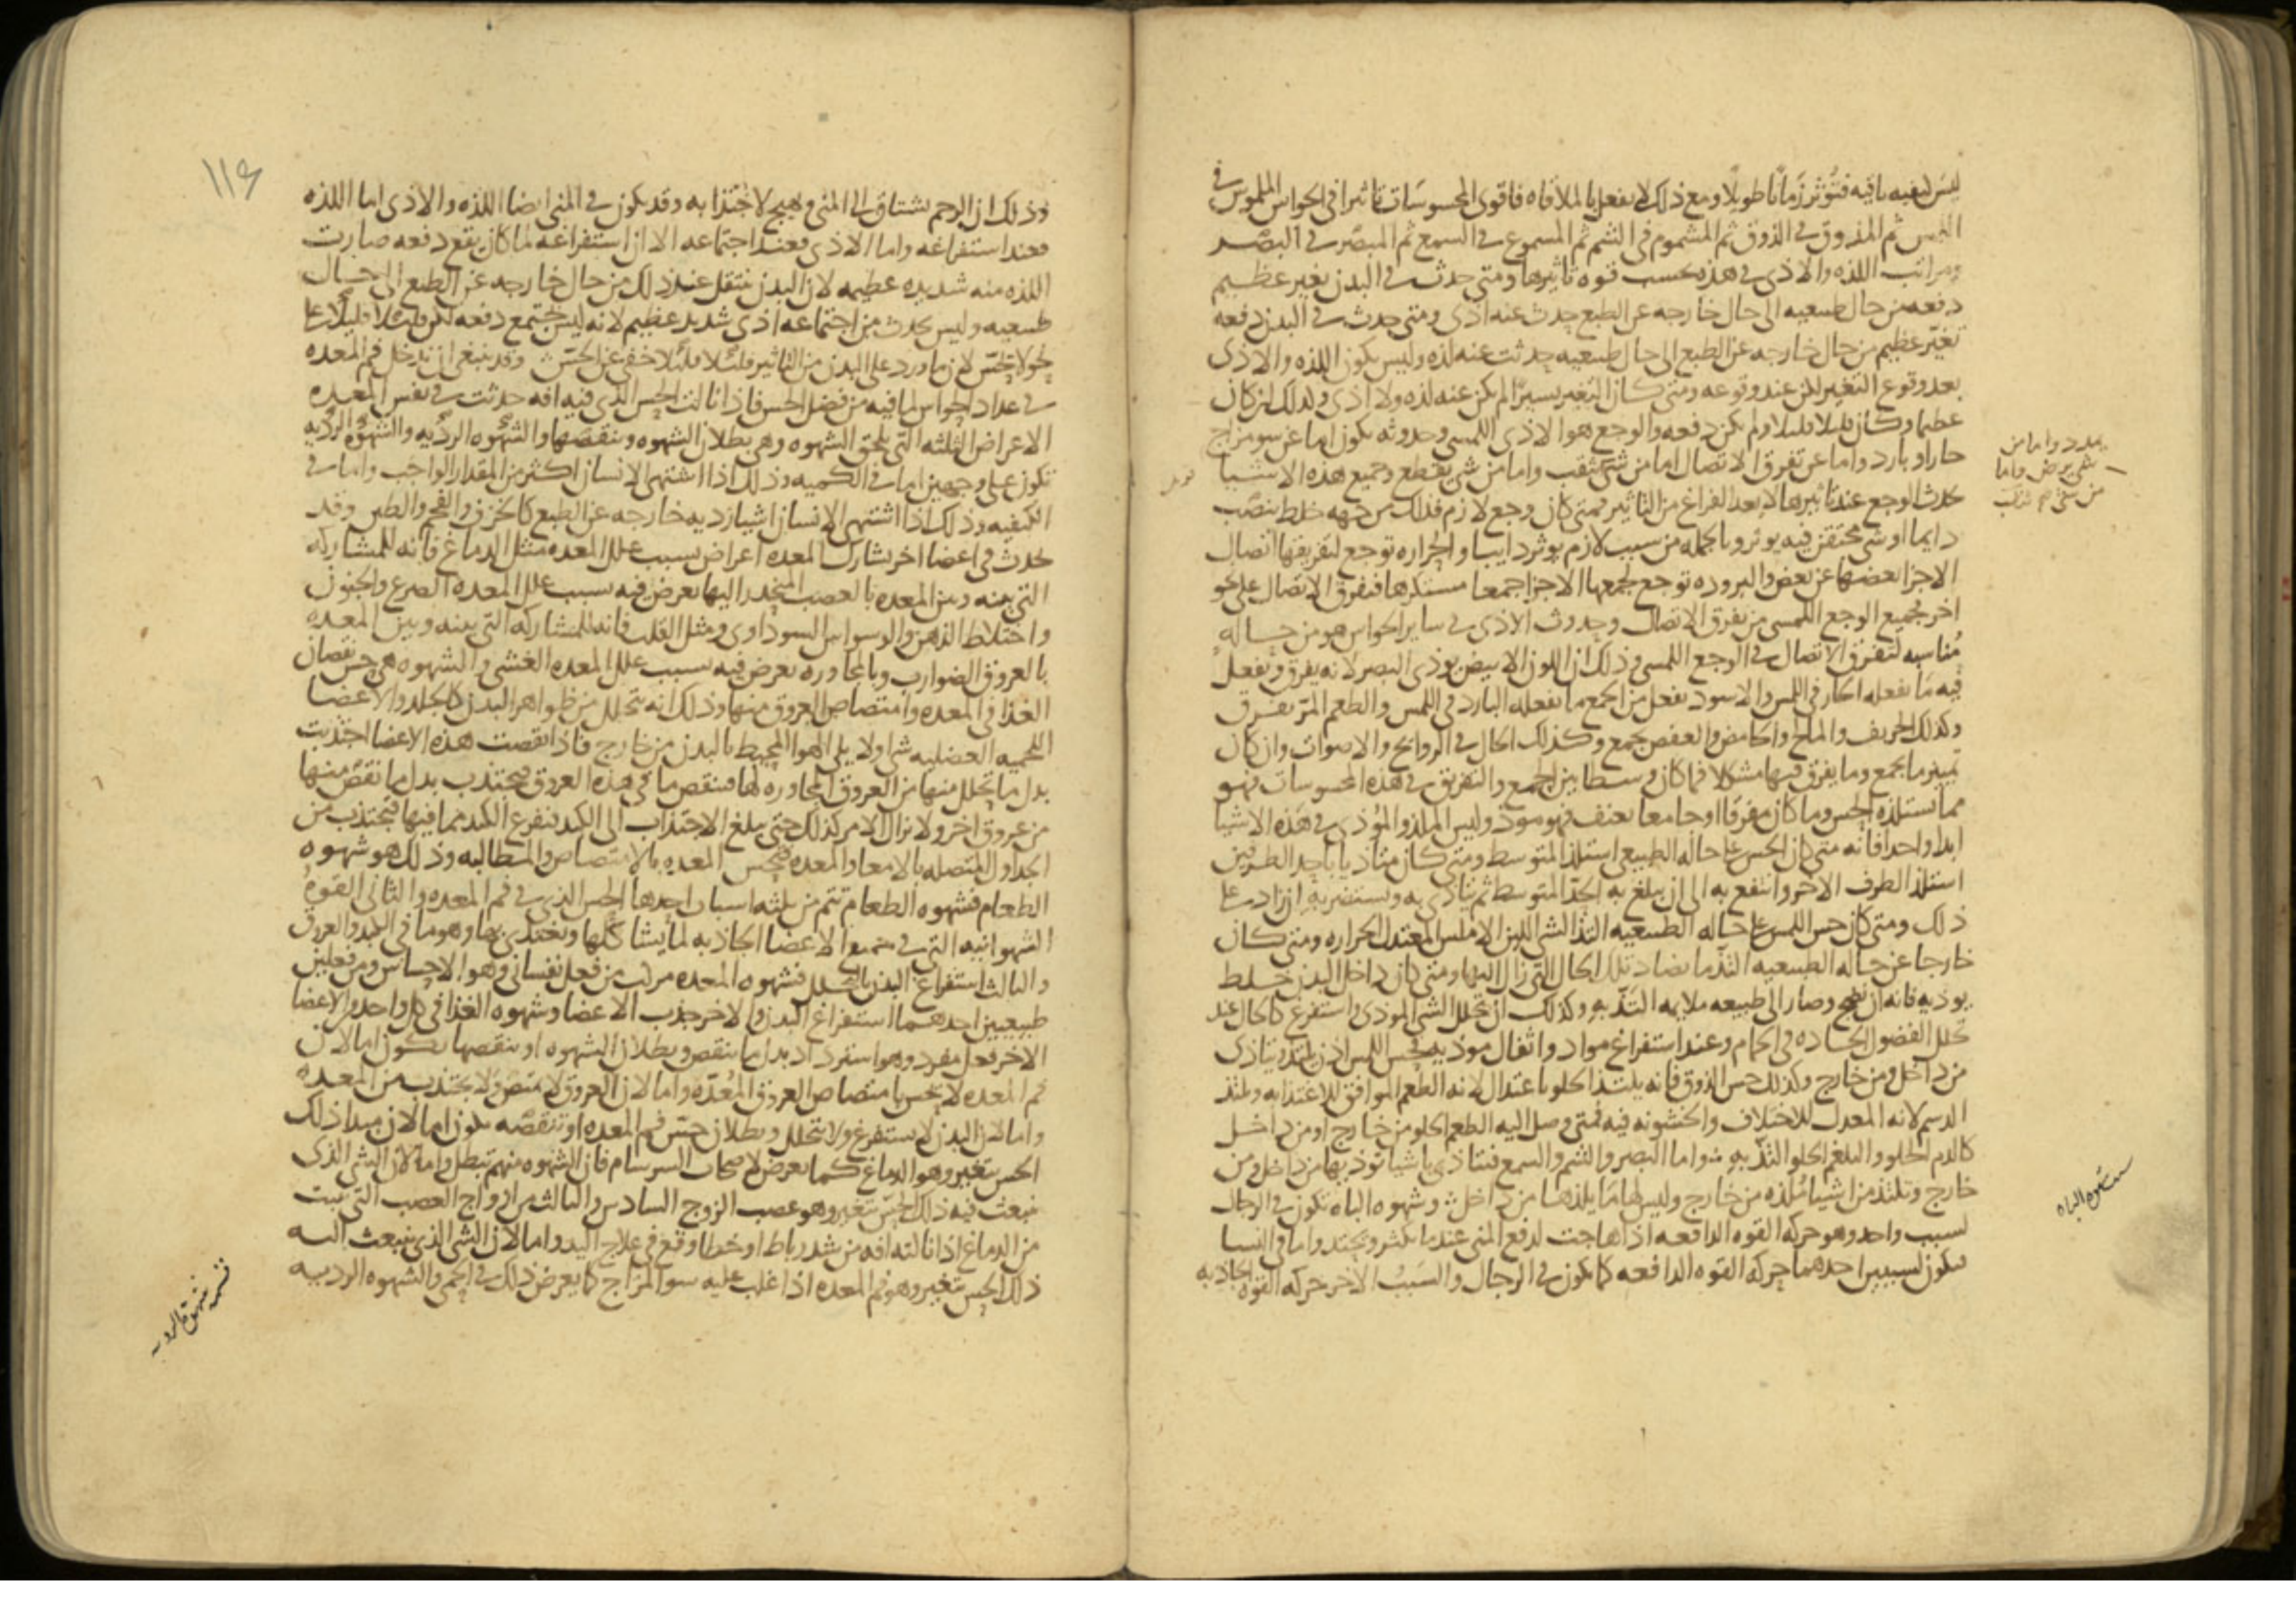 ليس كيفيه باقيه فتؤثر زمانا طويلا ومع ذلك لا يفعل بالملاقاه فاقوى المحسوسات تاثيرا في الحواس الملموس في
اللمس ثم المذوق في الذوق ثم المشموم في الشم ثم المسموع في السمع ثم المبصر في البصر
ومراتب اللذه والاذى في هذه بحسب قوه تاثيرها ومتى حدث في البدن تغير عظيم
دفعه من حال طبيعيه الى حال خارجه عن الطبع حدث عنه اذى ومتى حدث في البدن دفعه
تغير عظيم من حال خارجه عن الطبع الى حال طبيعيه حدثت عنه لذه وليس يكون اللذه والاذى
بعد وقوع التغير لكن عند وقوعه ومتى كان التغير يسيرا لم يكن عنه لذه ولا اذى وكذلك ان كان
عظيما وكان قليلا قليلا ولم يكن دفعه والوجع هو الاذى اللمسي وحدوثه يكون اما عن سو مزاج
حار او بارد واما عن تفرق الاتصال اما من شي يثقب واما من شي يقطع وجميع هذه الاشيا
يحدث الوجع عند تاثيرها لا بعد الفراغ من التاثير فمتى كان وجع لازم فذلك من جهه خلط ينصب
دايما او شي محتقن فيه يوثر وبالجمله من سبب لازم يوثر دايبا والحراره توجع لتفريقها اتصال
الاجزا بعضها عن بعض والبروده توجع لجمعها الاجزا جمعا مستكرها فتفرق الاتصال على نحو
اخر فجميع الوجع اللمسي من تفرق الاتصال وحدوث الاذى في ساير الحواس هو من حاله
مناسبه لتفرق الاتصال في الوجع اللمسي وذلك ان اللون الابيض يوذي البصر لانه يفرق ويفعل
فيه ما يفعله الحار في اللمس والاسود يفعل من الجمع ما يفعله البارد في اللمس والطعم المر يفرق
وكذلك الحريف والمالح والحامض والعفص يجمع وكذلك الحال في الروايح والاصوات وان كان
تمييز ما يجمع وما يفرق فيها مشكلا فما كان وسطا بين الجمع والتفريق في هذه المحسوسات فهو
مما تستلذه الحس وما كان مفرقا او جامعا بعنف فهو موذ وليس الملذ والموذي في هذه الاشيا
ابدا واحدا فانه متى كان الحس على حاله الطبيعي استلذ المتوسط ومتى كان متاذيا باحد الطرفين
استلذ الطرف الاخر وانتفع به الى ان يبلغ به الحد المتوسط ثم يتاذى به ويستضر به ان زاد على
ذلك ومتى كان حس اللمس على حاله الطبيعيه التذ الشي اللين الاملس المعتدل الحراره ومتى كان
خارجا عن حاله الطبيعيه التذ ما يضاد تلك الحال التي زال اليها ومتى كان داخل البدن خلط
يوذيه فانه ان نضج وصار الى طبيعه ملايمه التذ به وكذلك ان تحلل الشي الموذي واستفرغ كالحال عند
تحلل الفضول الحاده في الحمام وعند استفراغ مواد واثفال موذيه فحس اللمس اذن يلتذ ويتاذى
من داخل ومن خارج وكذلك حس الذوق فانه يلتذ الحلو باعتدال لانه الطعم الموافق للاغتذا به ويلتذ
الدسم لانه المعدل للاختلاف والخشونه فيه فمتى وصل اليه الطعم الحلو من خارج او من داخل
كالدم الحلو والبلغم الحلو التذ به واما البصر والشم والسمع فتتاذى باشيا توذيها من داخل ومن
خارج وتلتذ من اشيا ملذه من خارج وليس لها ما يلذها من داخل وشهوه الباه تكون في الرجال
لسبب واحد وهو حركه القوه الدافعه اذا هاجت لدفع المني عندما يكثر ويحتد واما في النسا
فيكون لسببين احدهما حركه القوه الدافعه كما يكون في الرجال والسبب الاخر حركه القوه الجاذبه
يمدد واما من
شي يرض واما
من شي يثقب
شهوه الباه
١١٤
وذلك ان الرحم يشتاق الى المني ويهيج لاجتذابه وقد يكون في المني ايضا اللذه والاذى اما اللذه
فعند استفراغه واما الاذى فعند اجتماعه الا ان استفراغه لما كان يقع دفعه صارت
اللذه منه شديده عظيمه لان البدن ينتقل عند ذلك من حال خارجه عن الطبع الى حال
طبيعيه وليس يحدث من اجتماعه اذى شديد عظيم لانه ليس يجتمع دفعه لكن قليلا قليلا على
نحو لا يحس لان ما ورد على البدن من التاثير قليلا قليلا خفي عن الحس وقد ينبغي ان ندخل فم المعده
في عداد الحواس لما فيه من فضل الحس فاذا نالت الحس الذي فيه افه حدثت في نفس المعده
الاعراض الثلثه التي تلحق الشهوه وهي بطلان الشهوه ونقصها والشهوه الرديه والشهوه الرديه
تكون على وجهين اما في الكميه وذلك اذا اشتهى الانسان اكثر من المقدار الواجب واما في
الكيفيه وذلك اذا اشتهى الانسان اشيا رديه خارجه عن الطبع كالخزف والفحم والطين وقد
يحدث في اعضا اخر يشارك المعده اعراض بسبب علل المعده مثل الدماغ فانه للمشاركه
التي بينه وبين المعده بالعصب المنحدر اليها يعرض فيه بسبب علل المعده الصرع والجنون
واختلاط الذهن والوسواس السوداوي ومثل القلب فانه للمشاركه التي بينه وبين المعده
بالعروق الضوارب وبالمجاوره يعرض فيه بسبب علل المعده الغشي والشهوه هي حس نقصان
الغذا في المعده وامتصاص العروق منها وذلك انه يتحلل من ظواهر البدن كالجلد والاعضا
اللحميه العضليه شي اولا يلي الهوا المحيط بالبدن من خارج فاذا نقصت هذه الاعضا اجتذبت
بدل ما يتحلل منها من العروق المجاوره لها فينقص ما في هذه العروق فيجتذب بدل ما نقص منها
من عروق اخر ولا يزال الامر كذلك حتى يبلغ الاجتذاب الى الكبد فتفرغ الكبد مما فيها فتجتذب من
الجداول المتصله بالامعا والمعده فيحس المعده بالامتصاص والمطالبه وذلك هو شهوه
الطعام فشهوه الطعام تتم من ثلثه اسباب احدها الحس الذي في فم المعده والثاني القوه
الشهوانيه التي في جميع الاعضا الجاذبه لما يشاكلها وتغتذي بها وهو ما في الكبد والعروق
والثالث استفراغ البدن بالتحلل فشهوه المعده مركب من فعل نفساني وهو الاحساس ومن فعلين
طبيعيين احدهما استفراغ البدن والاخر جذب الاعضا وشهوه الغذا في كل واحد من الاعضا
الاخر فعل مفرد وهو استرداد بدل ما ينقص وبطلان الشهوه او نقصها يكون اما لان
فم المعده لا يحس بامتصاص العروق المعده واما لان العروق لا تمتص ولا يجتذب من المعده
واما لان البدن لا يستفرغ ولا يتحلل وبطلان حس فم المعده او نقصه يكون اما لان مبدا ذلك
الحس تغير وهو الدماغ كما يعرض لاصحاب السرسام فان الشهوه منهم تبطل واما لان الشي الذي
ينبعث فيه ذلك الحس تغير وهو عصب الزوج السادس والثالث من ازواج العصب التي تنبت
من الدماغ اذا نالته افه من شد رباط او خطا وقع في علاج اليد واما لان الشي الذي ينبعث اليه
ذلك الحس تغير وهو فم المعده اذا غلب عليه سو المزاج كما يعرض ذلك في الحمى والشهوه الرديه